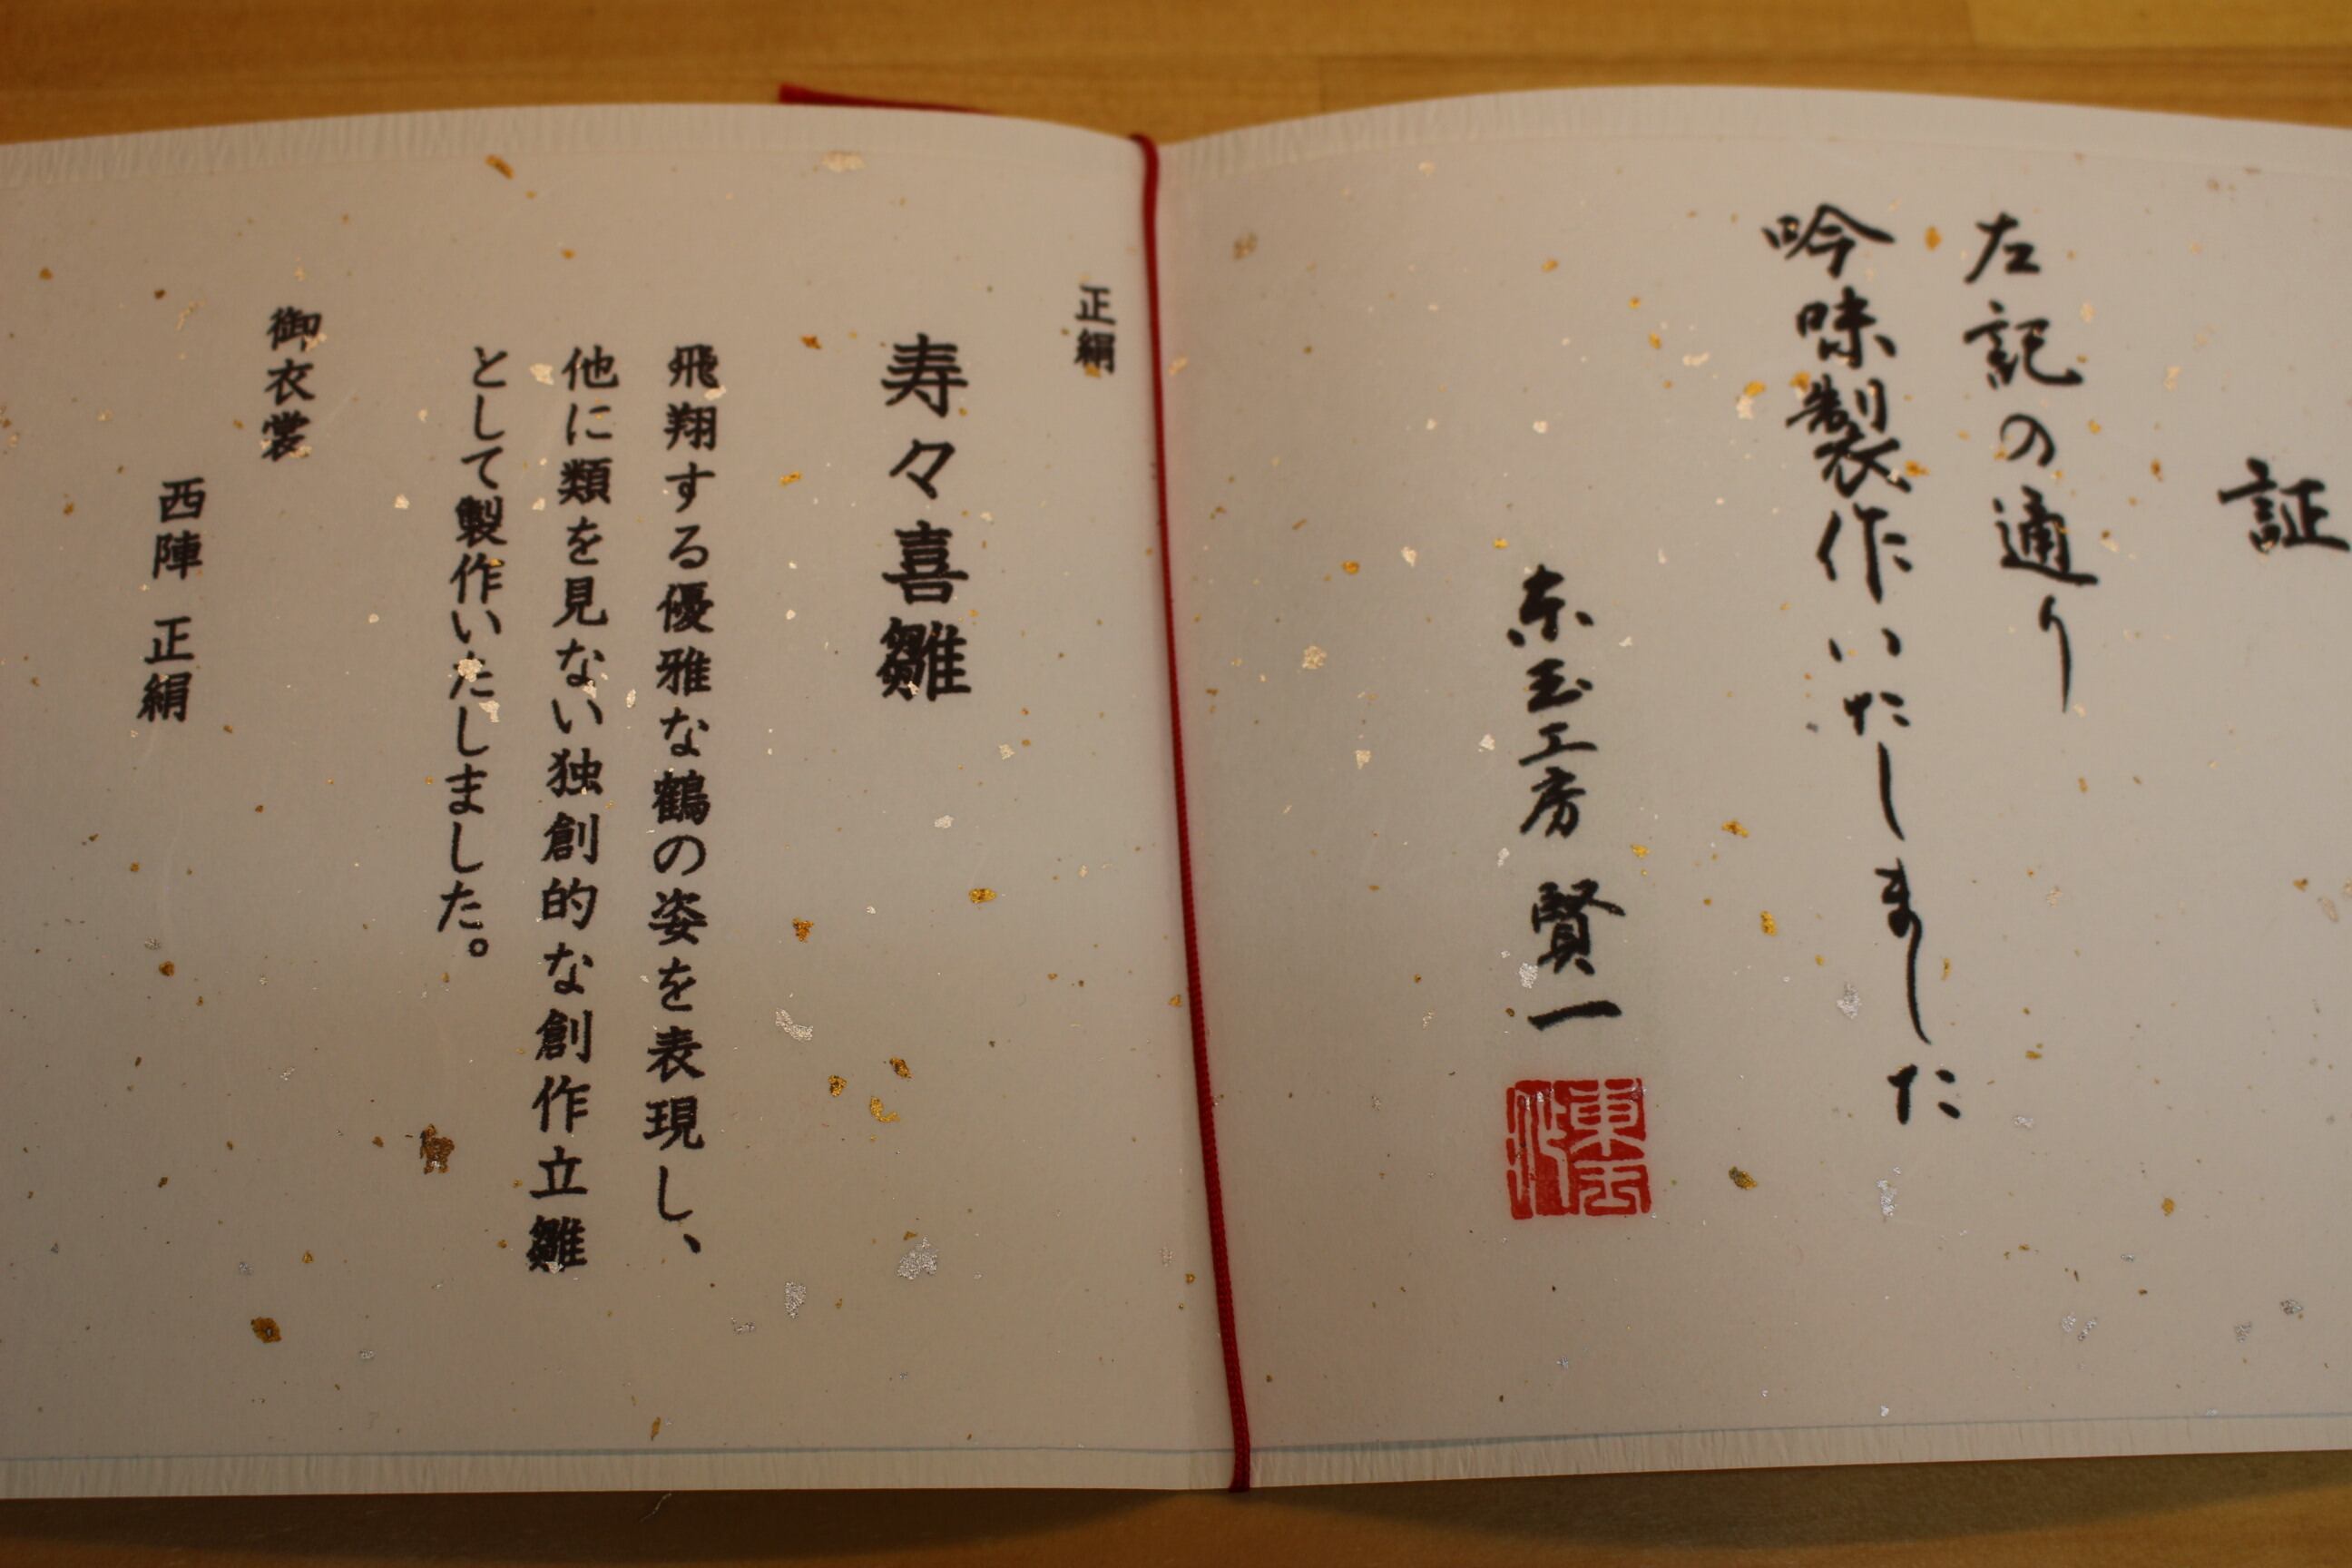 証
左記の通り
吟味製作いたしました
東玉工房 賢一
東玉
正絹
寿々喜雛
飛翔する優雅な鶴の姿を表現し、
他に類を見ない独創的な創作立雛
として製作いたしました。
御衣裳
西陣 正絹